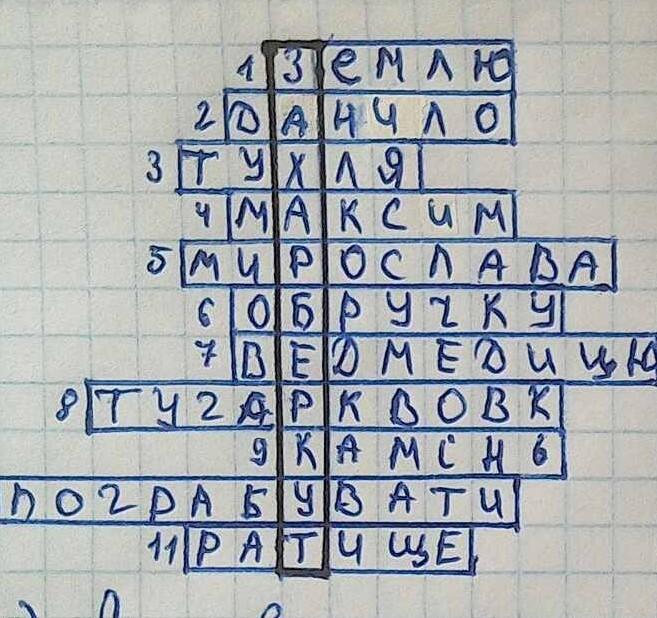 1 ЗЕМЛЮ
2 ДАНИЛО
3 ТУХЛЯ
4 МАКСИМ
5 МИРОСЛАВА
6 ОБРУЧКУ
7 ВЕДМЕДИЦЮ
8 ТУГАРКВОВК
9 КАМЄНЬ
ПОГРАБУВАТИ
11 РАТИЩЕ